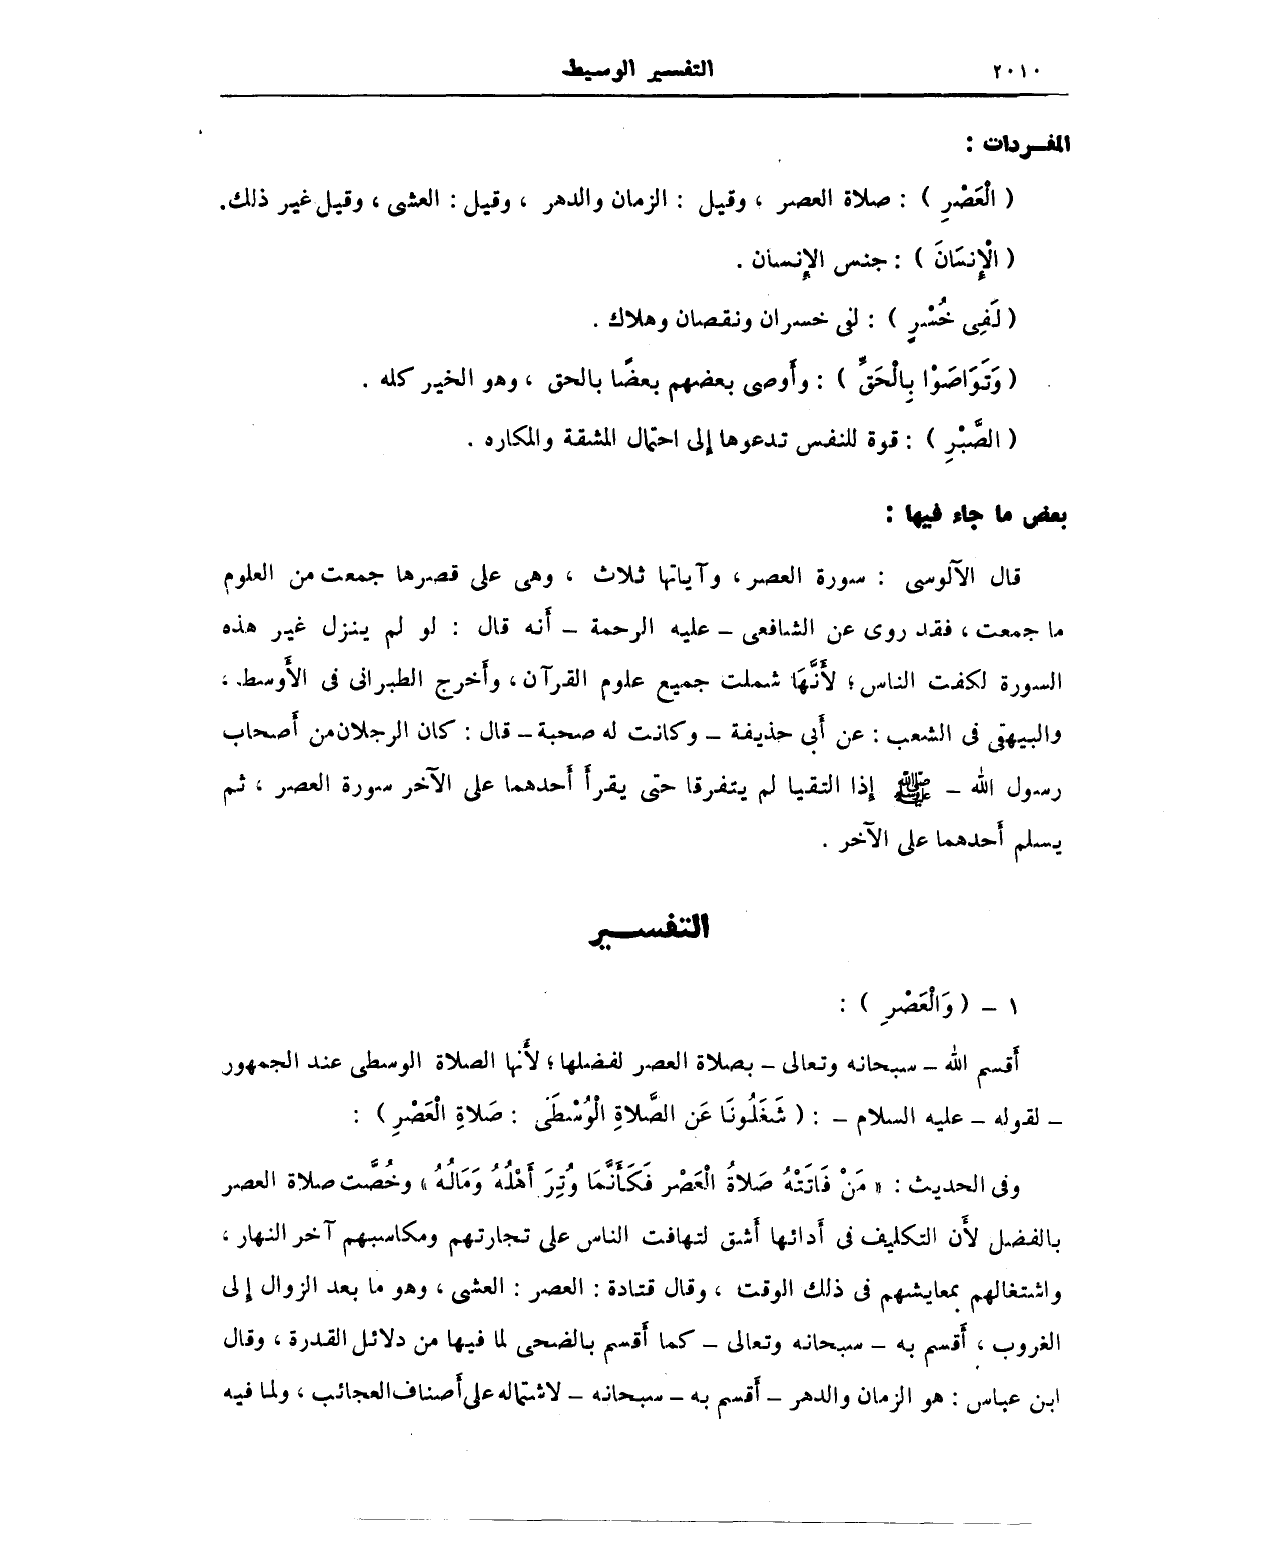 ٢٠١٠ التفسير الوسيط
المفردات :
( الْعَصْرِ ) : صلاة العصر ، وقيل : الزمان والدهر ، وقيل : العشى ، وقيل غير ذلك.
( الْإِنسَانَ ) : جنس الإِنسان .
( لَفِى خُسْرٍ ) : لفى خسران ونقصان وهلاك .
( وَتَوَاصَوْا بِالْحَقِّ ) : وأَوصى بعضهم بعضًا بالحق ، وهو الخير كله .
( الصَّبْرِ ) : قوة للنفس تدعوها إلى احتمال المشقة والمكاره .
بعض ما جاء فيها :
قال الآلوسى : سورة العصر ، وآياتها ثلاث ، وهى على قصرها جمعت من العلوم
ما جمعت ، فقد روى عن الشافعى – عليه الرحمة – أَنه قال : لو لم ينزل غير هذه
السورة لكفت الناس ؛ لأَنَّهَا شملت جميع علوم القرآن ، وأَخرج الطبرانى فى الأَوسط ،
والبيهقى فى الشعب : عن أَبى حذيفة – وكانت له صحبة – قال : كان الرجلان من أَصحاب
رسول الله – ﷺ إذا التقيا لم يتفرقا حتى يقرأَ أَحدهما على الآخر سورة العصر ، ثم
يسلم أَحدهما على الآخر .
التفسير
١ – ( وَالْعَصْرِ ) :
أَقسم الله – سبحانه وتعالى – بصلاة العصر لفضلها ؛ لأَنها الصلاة الوسطى عند الجمهور
– لقوله – عليه السلام – : ( شَغَلُونَا عَن الصَّلَاةِ الْوُسْطَى : صَلَاةِ الْعَصْرِ ) :
وفى الحديث : « مَنْ فَاتَتْهُ صَلَاةُ الْعَصْر فَكَأَنَّمَا وُتِرَ أَهْلُهُ وَمَالُهُ » وخُصَّت صلاة العصر
بالفضل لأَن التكليف فى أَدائها أَشق لتهافت الناس على تجارتهم ومكاسبهم آخر النهار ،
واشتغالهم بمعايشهم فى ذلك الوقت ، وقال قتادة : العصر : العشى ، وهو ما بعد الزوال إلى
الغروب ، أَقسم به – سبحانه وتعالى – كما أَقسم بالضحى لما فيها من دلائل القدرة ، وقال
ابن عباس : هو الزمان والدهر – أَقسم به – سبحانه – لاشتماله على أَصناف العجائب ، ولما فيه